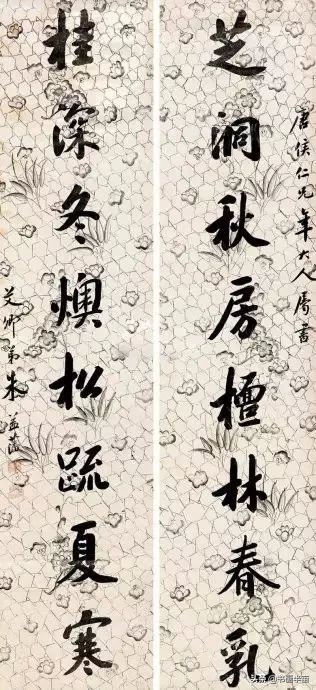 唐侯仁兄年大人属書
芝洞秋房檀林春乳
桂深冬燠松疏夏寒
艾卿弟朱益藩
头条@书画半亩